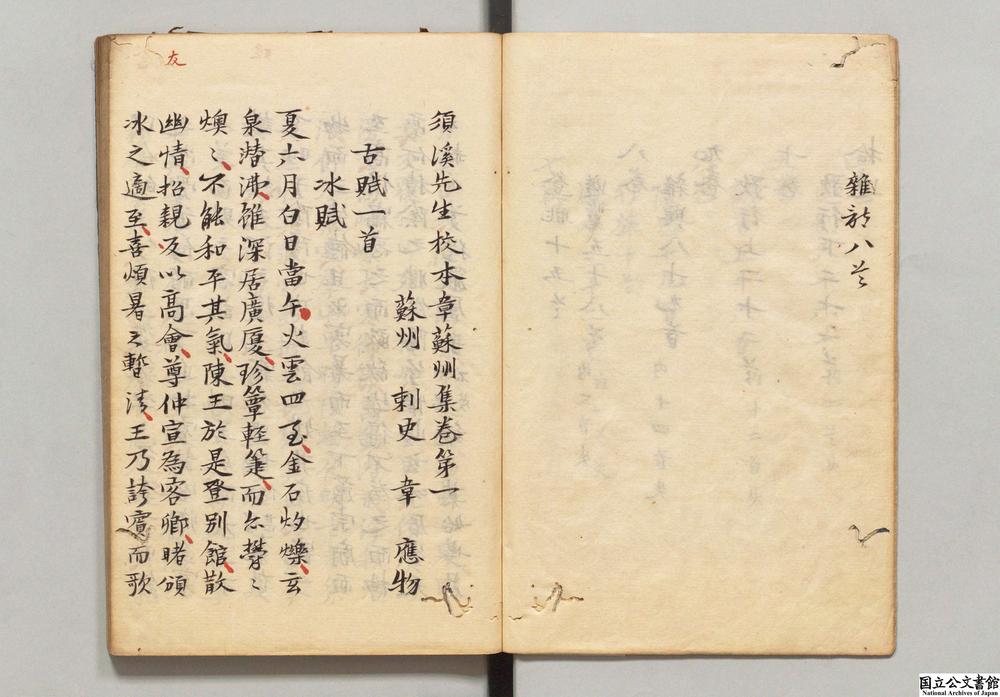 雜詩八首
友
須溪先生校本韋蘇州集卷第一
蘇州 刺史 韋 應物
古賦一首
冰賦
夏六月白日當午火雲四至金石灼爍玄
泉潜沸雖深居廣廈珍簟輕箑而亦鬱〻
燠〻不能和平其氣陳王於是登別館散
幽情招親友以高會尊仲宣為客卿睹頒
冰之適至喜煩暑之暫清王乃誇賓而歌
国立公文書館
National Archives of Japan